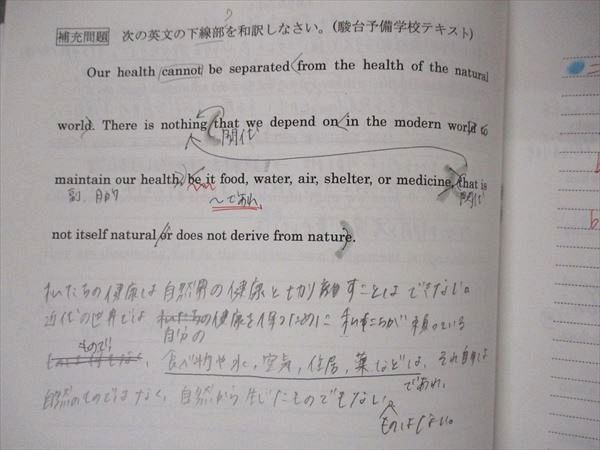 補充問題 次の英文の下線部を和訳しなさい。(駿台予備学校テキスト)
Our health cannot be separated from the health of the natural
world. There is nothing that we depend on in the modern world to
関代
maintain our health, be it food, water, air, shelter, or medicine, that is
副 目的 〜であれ、 関代
not itself natural or does not derive from nature.
私たちの健康は自然界の健康と切り離すことはできない。
近代の世界では 私たちの健康を保つために 私たちが頼っている
自分の
もので
食べ物や水、空気、住居、薬などは、それ自身は
であれ、
自然のものではなく、自然から生じたものでもない。
ものはない。